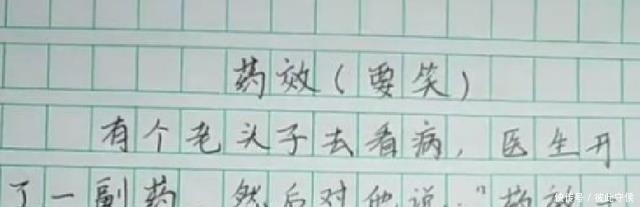 药效(要笑)
有个老头子去看病,医生开
了一副药 然后对他说:"药效
快传号 / 彼此守候